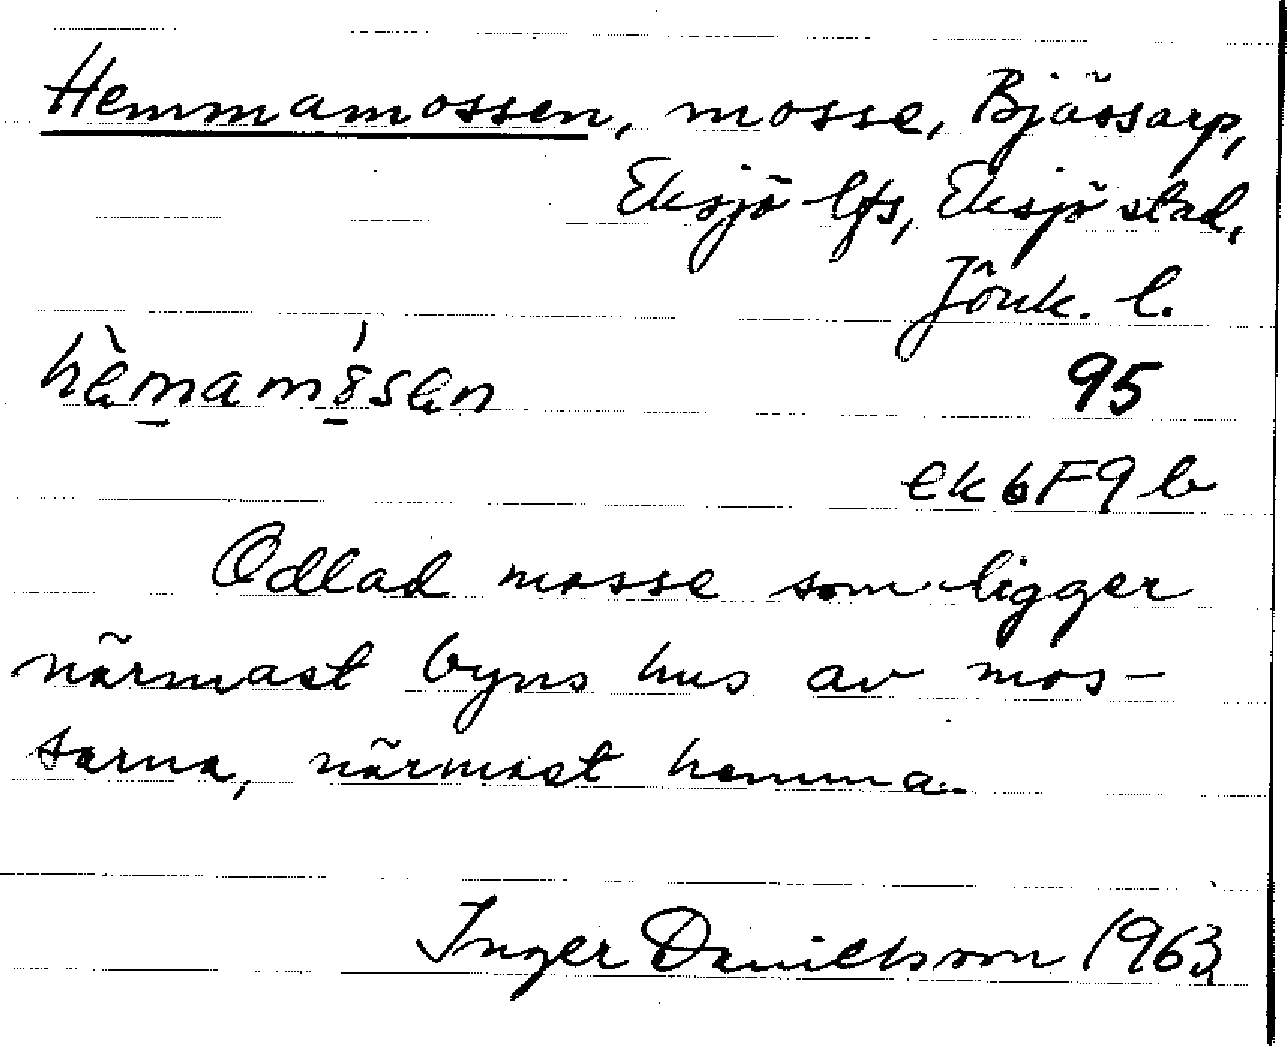 Hemmamossen, mosse, Bjässarp,
Eksjö lfs, Eksjö stad,
Jönk. l.
hèmamósen 95
ek 6F9b
Odlad mosse som ligger
närmast byns hus av mos-
sarna, närmast hemma.
Inger Danielsson 1963